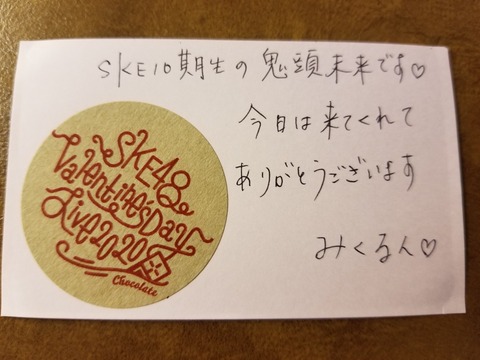 SKE10期生の鬼頭未来です♡
今日は来てくれて
ありがとうございます
みくるん♡
SKE48
Valentine's Day
Live2020
Chocolate